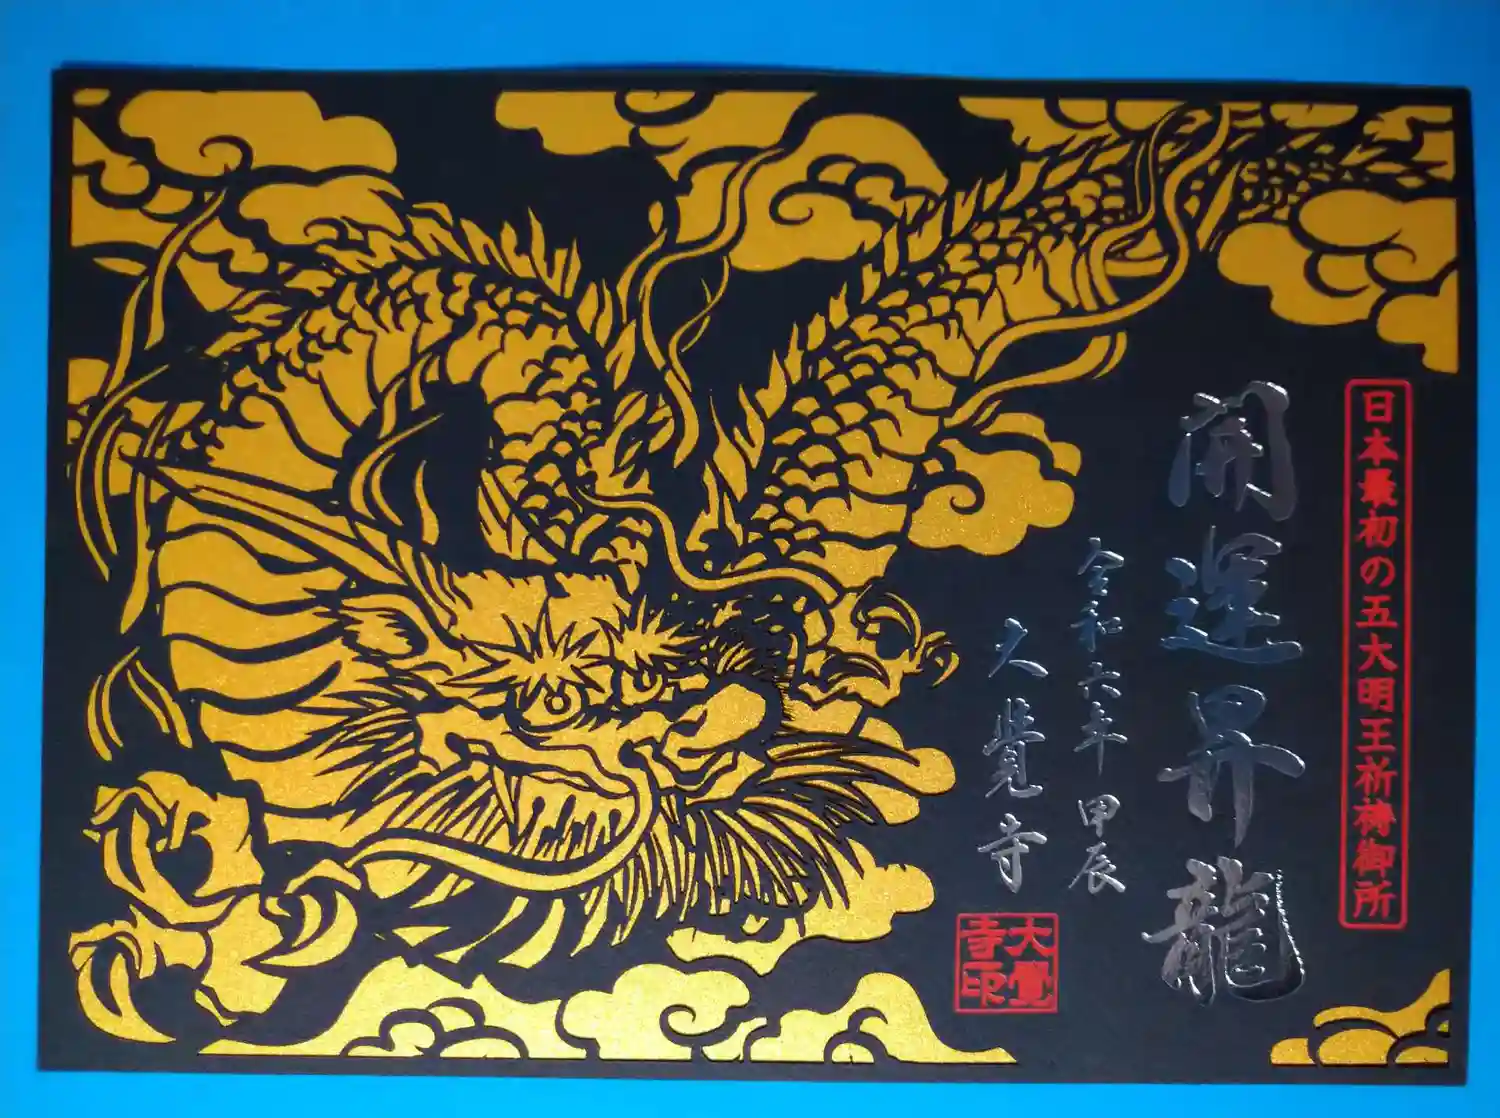 日本最初の五大明王祈祷御所
開運昇龍
令和六年 甲辰
大覺寺
大覺寺印